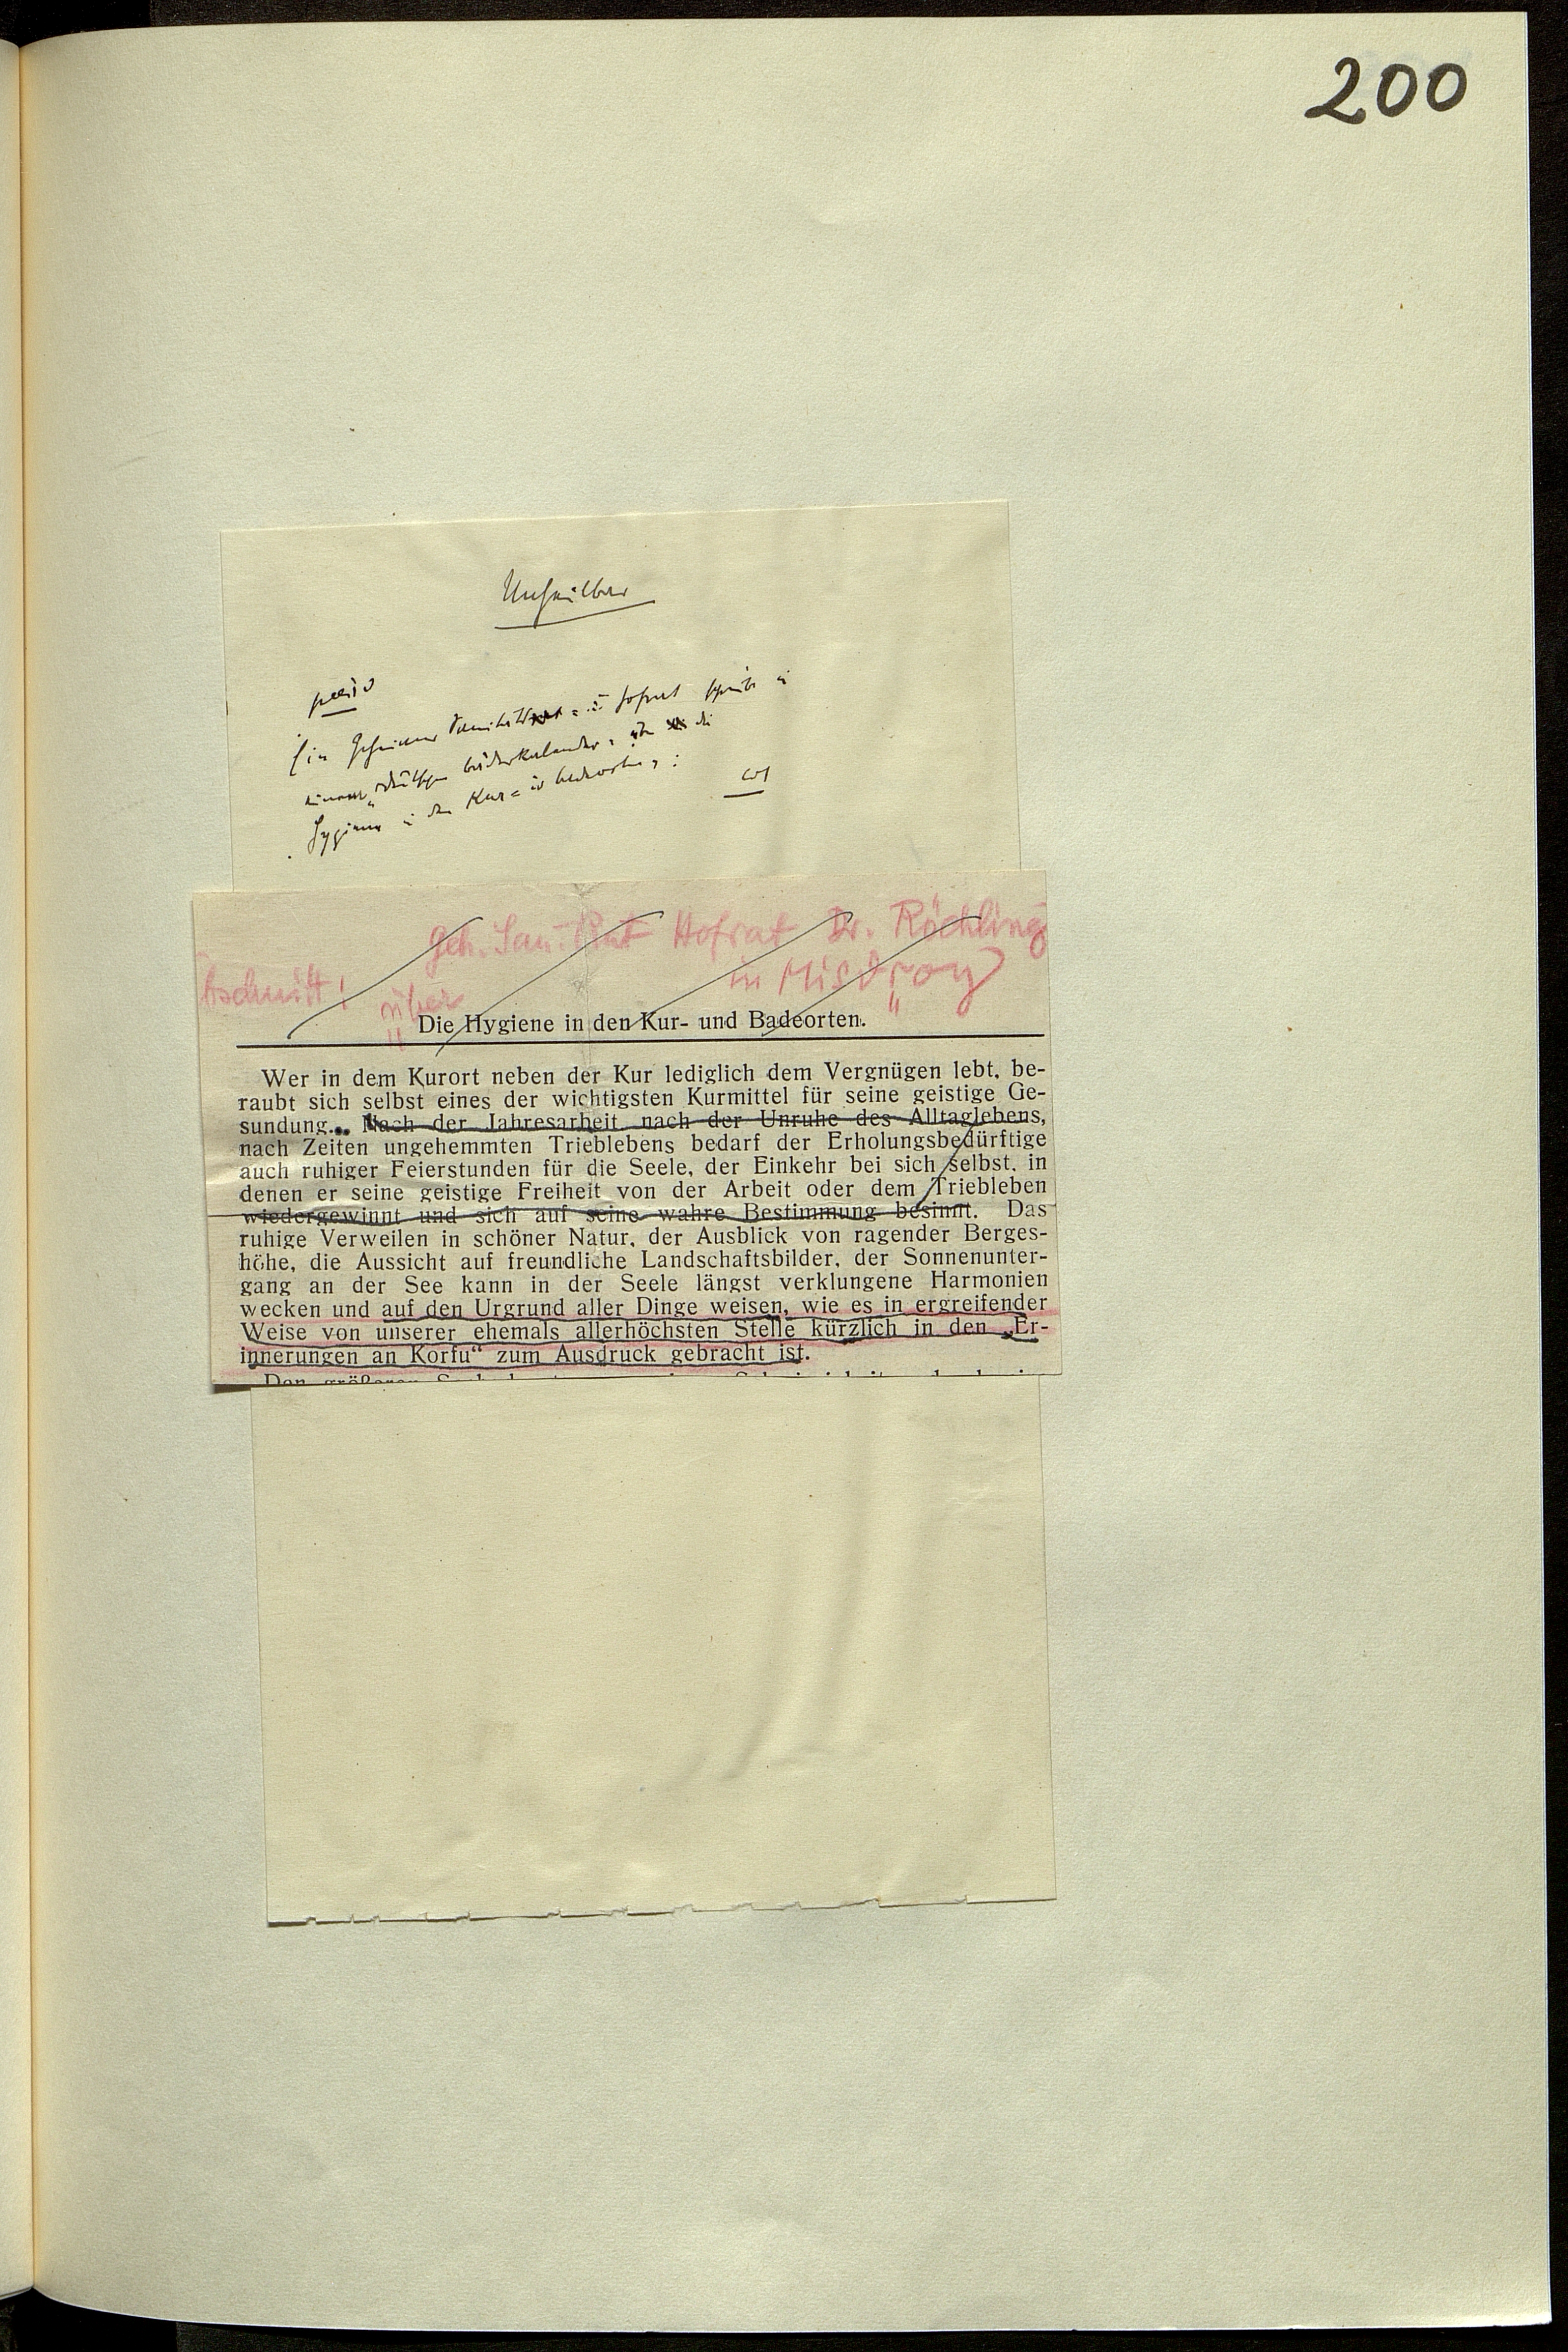 200
Unheilbar
Ein Geheimer Sanitäts = u Hofrat schreibt in
einem „deutschen Bäderkalender“ über die
Hygiene in den Kur = u Badeorten :
Geh. San. Rat Hofrat Dr. Röchling
in Misdroy
über
„Die Hygiene in den Kur- und Badeorten.“
Wer in dem Kurort neben der Kur lediglich dem Vergnügen lebt, be-
raubt sich selbst eines der wichtigsten Kurmittel für seine geistige Ge-
sundung.. Nach der Jahresarbeit nach der Unruhe des Alltaglebens,
nach Zeiten ungehemmten Trieblebens bedarf der Erholungsbedürftige
auch ruhiger Feierstunden für die Seele, der Einkehr bei sich selbst, in
denen er seine geistige Freiheit von der Arbeit oder dem Triebleben
wiedergewinnt und sich auf seine wahre Bestimmung besinnt. Das
ruhige Verweilen in schöner Natur, der Ausblick von ragender Berges-
höhe, die Aussicht auf freundliche Landschaftsbilder, der Sonnenunter-
gang an der See kann in der Seele längst verklungene Harmonien
wecken und auf den Urgrund aller Dinge weisen, wie es in ergreifender
Weise von unserer ehemals allerhöchsten Stelle kürzlich in den „Er-
innerungen an Korfu“ zum Ausdruck gebracht ist.